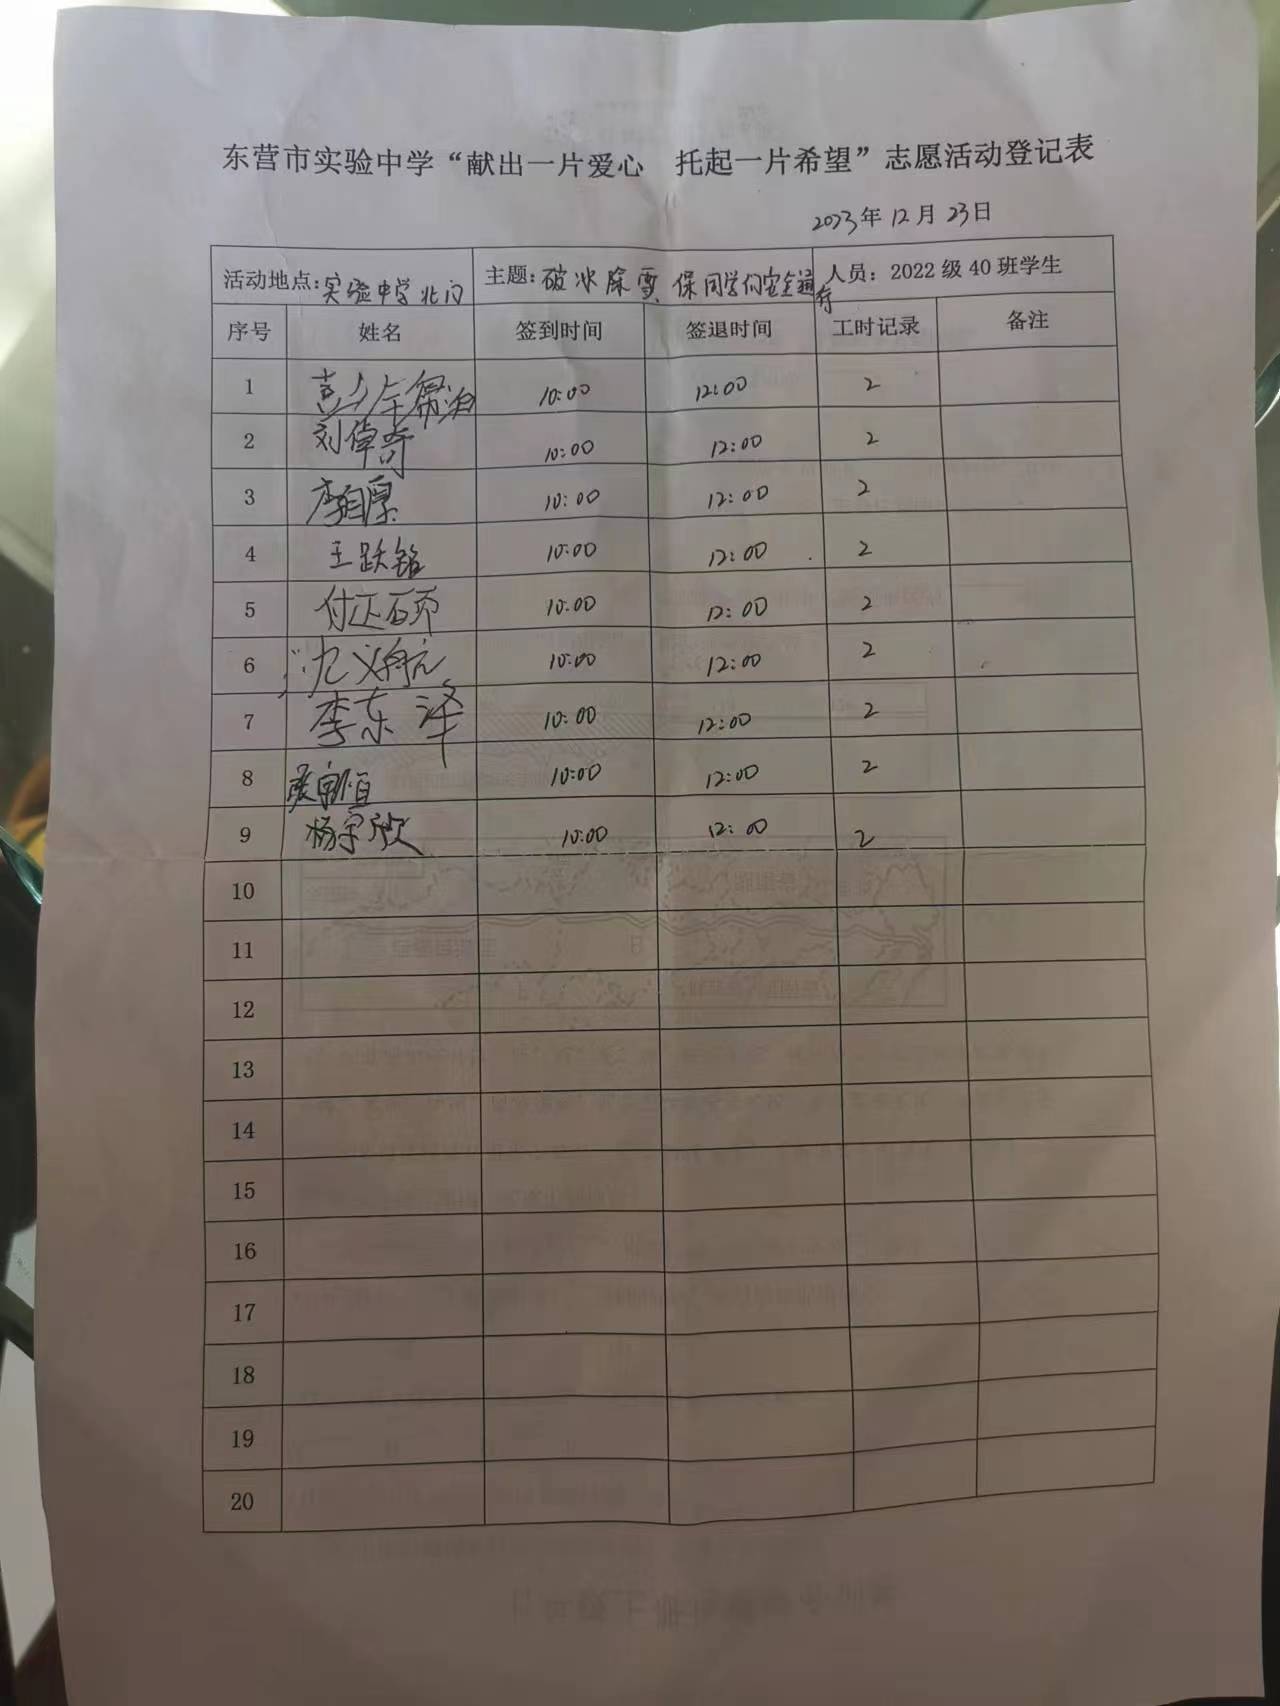 东营市实验中学“献出一片爱心 托起一片希望”志愿活动登记表
2023年12月23日
活动地点:实验中学北门 主题:破冰除雪,保同学们安全通行 人员：2022级40班学生
序号 姓名 签到时间 签退时间 工时记录 备注
1 10:00 12:00 2
2 刘倬奇 10:00 12:00 2
3 李自厚 10:00 12:00 2
4 王跃铭 10:00 12:00 2
5 付正硕 10:00 12:00 2
6 10:00 12:00 2
7 李东泽 10:00 12:00 2
8 10:00 12:00 2
9 杨宇欣 10:00 12:00 2
10
11
12
13
14
15
16
17
18
19
20